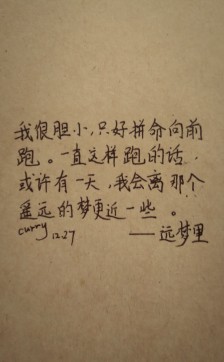 我很胆小，只好拼命向前
跑。一直这样跑的话，
或许有一天，我会离那个
遥远的梦更近一些。
curry 12.27 ——远梦里